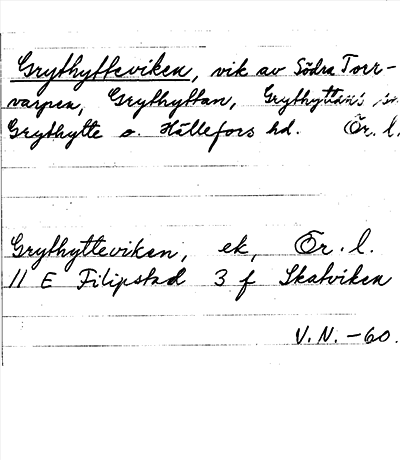 Grythytteviken, vik av Södra Torr-
varpen, Grythyttan, Grythyttans sn.
Grythytte o. Hällefors hd. Ör. l.
Grythytteviken, ek, Ör. l.
11 E Filipstad 3 f Skatviken
V. N. -60.